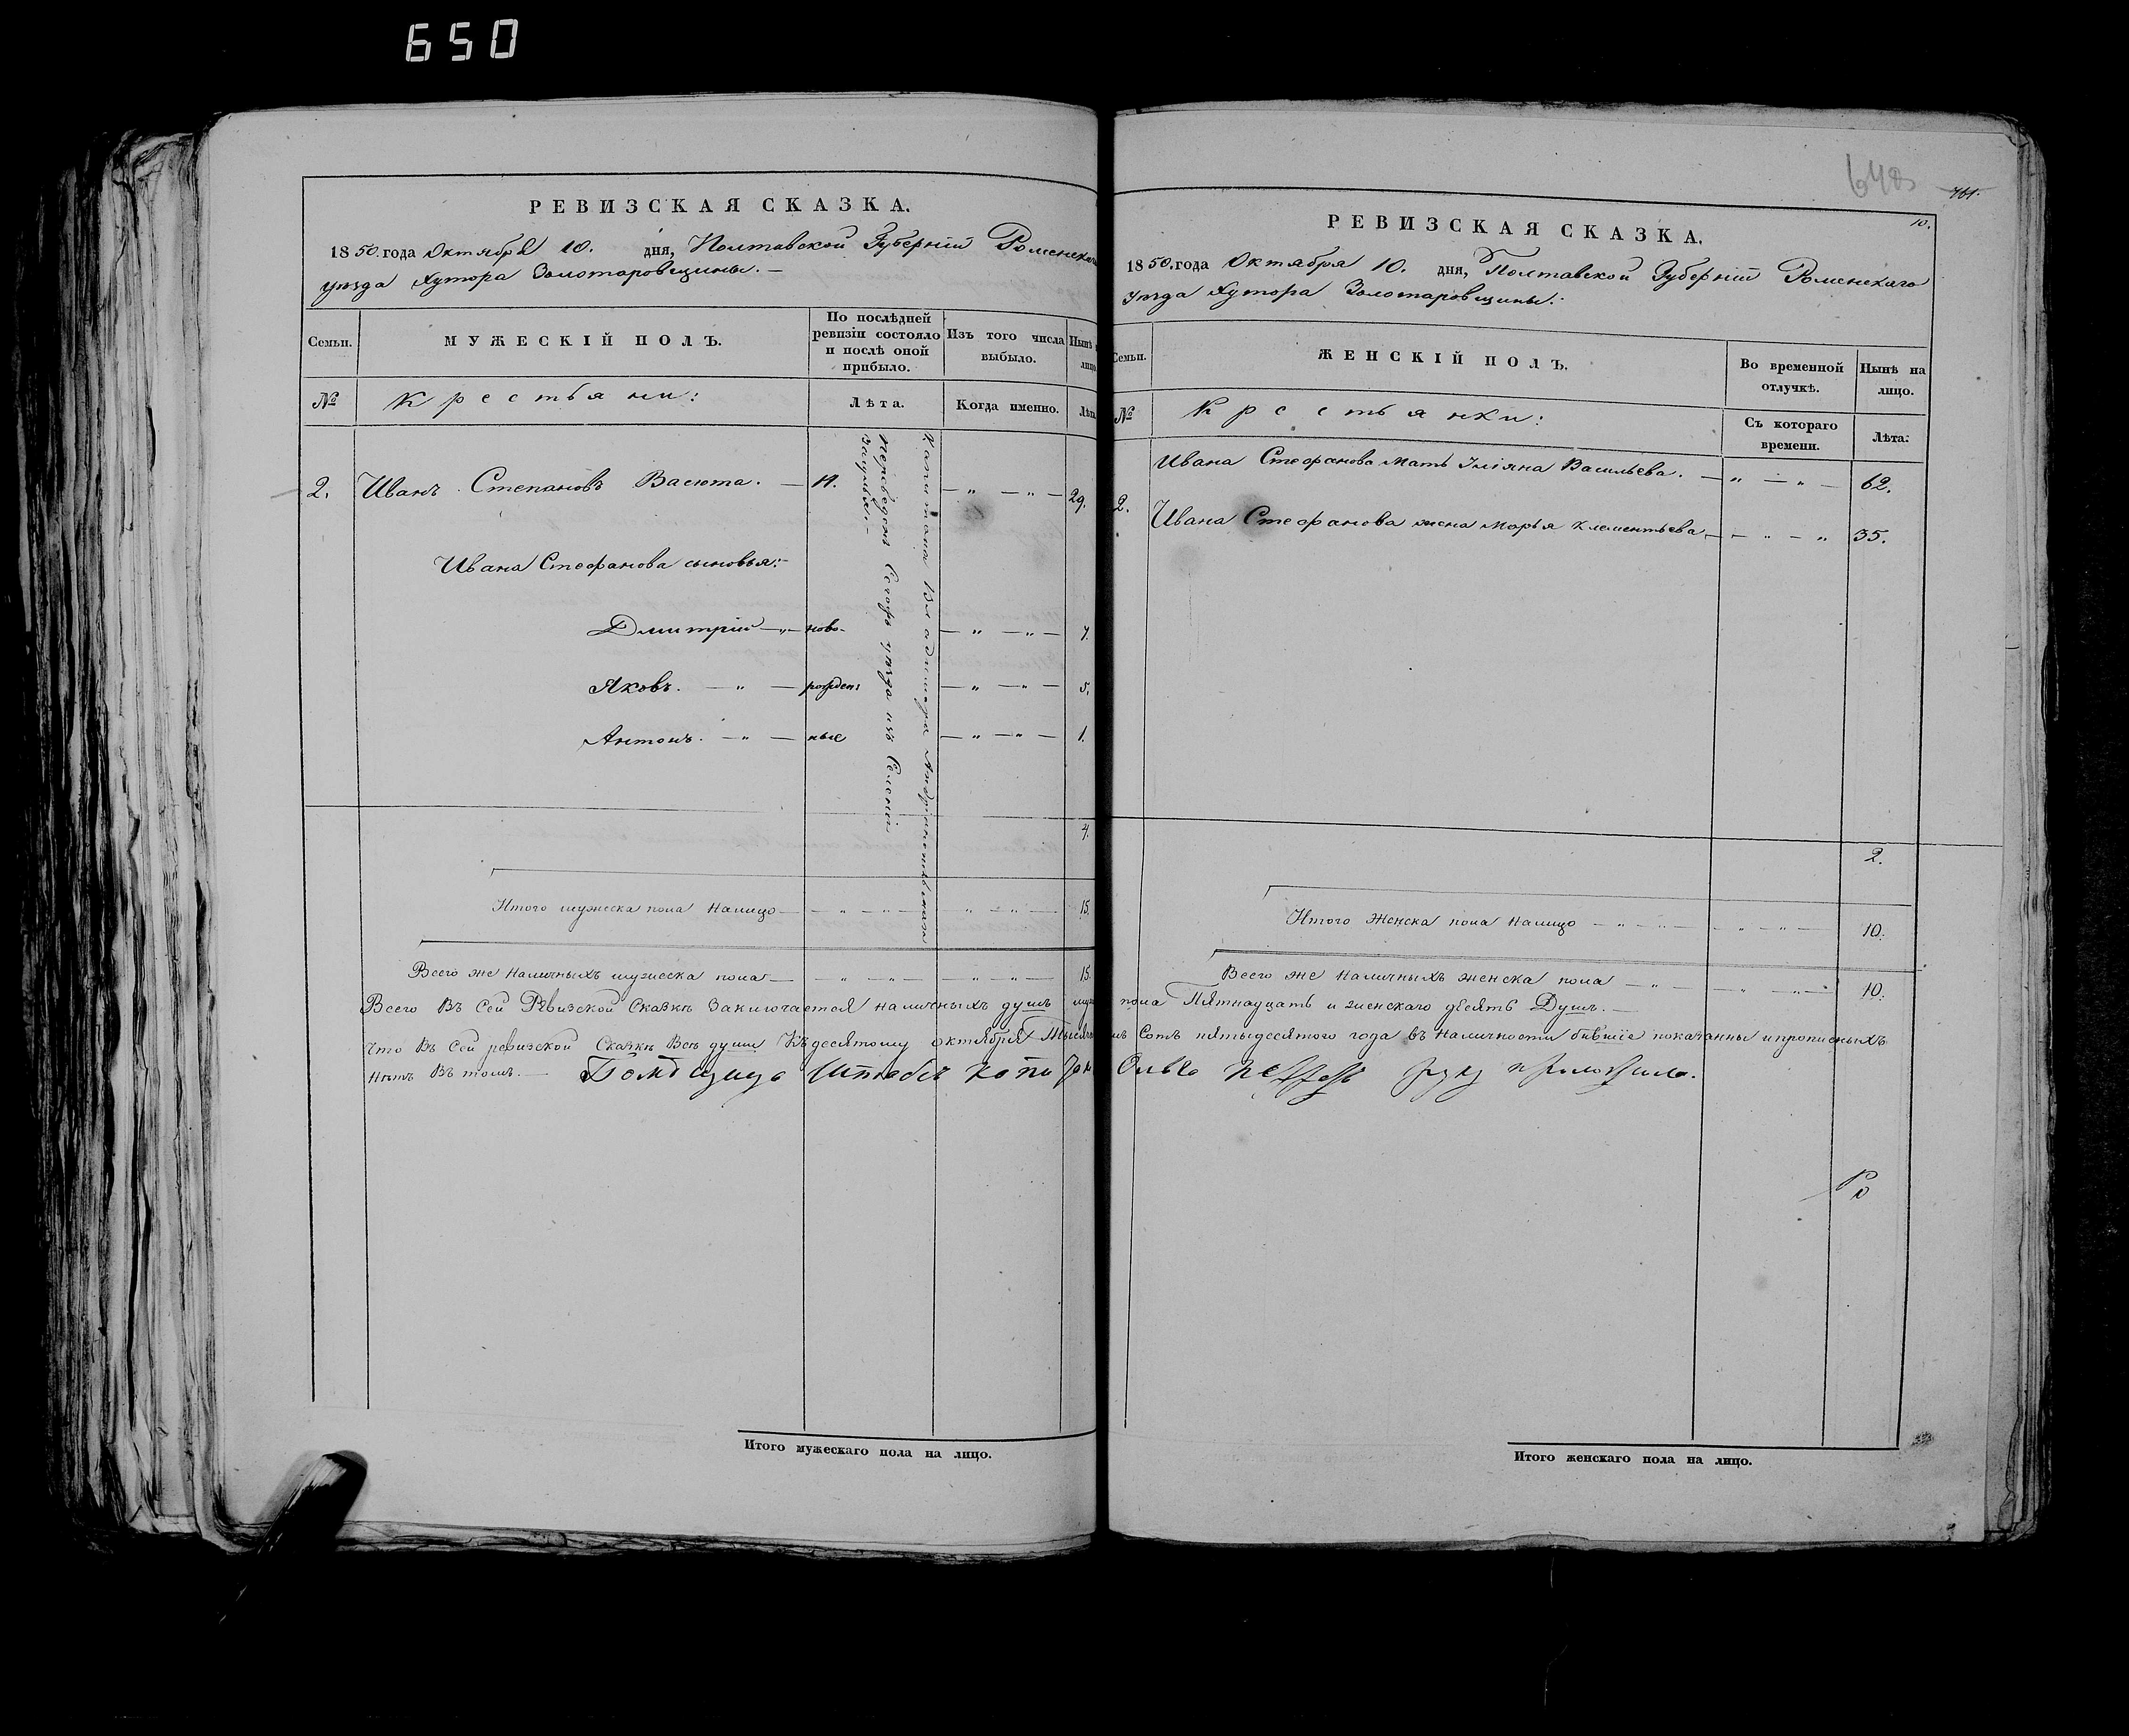 650
РЕВИЗСКАЯ СКАЗКА.
1850. года Октября 10. дня, Полтавской Губерніи Роменскаго
уезда Хутора Золотаровщины. —
Семьи.
МУЖЕСКІЙ ПОЛЪ.
По послѣдней ревизіи состояло и послѣ оной прибыло.
Изъ того числа выбыло.
Нынѣ на лицо.
№
Крестьяни:
Лѣта.
Когда именно.
Лѣта.
2. Иванъ Степановъ Васюта. — — " — " — 29.
Ивана Стефанова сыновья:
Дмитрій — " — ново- — " — " — 7.
Яковъ. — " — рожден: — " — " — 5.
Антонъ. — " — ные — " — " — 1.
переведенъ Сегожъ уезда изъ Селеній
Капитана Владимира
4.
Итого мужеска пола налицо — — " — " — " — " — 15.
Всего же наличныхъ мужеска пола — — " — " — " — " — 15.
Всего въ сей Ревизской Сказкѣ заключается наличныхъ душъ муж
что въ сей ревизской Сказкѣ Всѣ души Къ десятому октября Тысяча
нѣтъ въ томъ. — Помѣщица Штабсъ Капитан
Итого мужескаго пола на лицо.
648
761.
10.
РЕВИЗСКАЯ СКАЗКА.
1850. года Октября 10. дня, Полтавской Губерніи Роменскаго
уезда Хутора Золотаровщины.
Семьи.
ЖЕНСКІЙ ПОЛЪ.
Во временной отлучкѣ.
Нынѣ на лицо.
№
Крестьянки:
Съ котораго времени.
Лѣта.
Ивана Стефанова мать Васильева. — " — " — 62.
2. Ивана Стефанова жена Марья Клементьева — — " — " 35.
2.
Итого Женска пола налицо — " — " — " — " — 10.
Всего же наличныхъ женска пола — " — " — " — 10.
пола Пятнадцать и женскаго десять Душъ. —
Сотъ пятьдесятого года въ наличности бывшіе показанны и прописныхъ
руку приложила.
Итого женскаго пола на лицо.